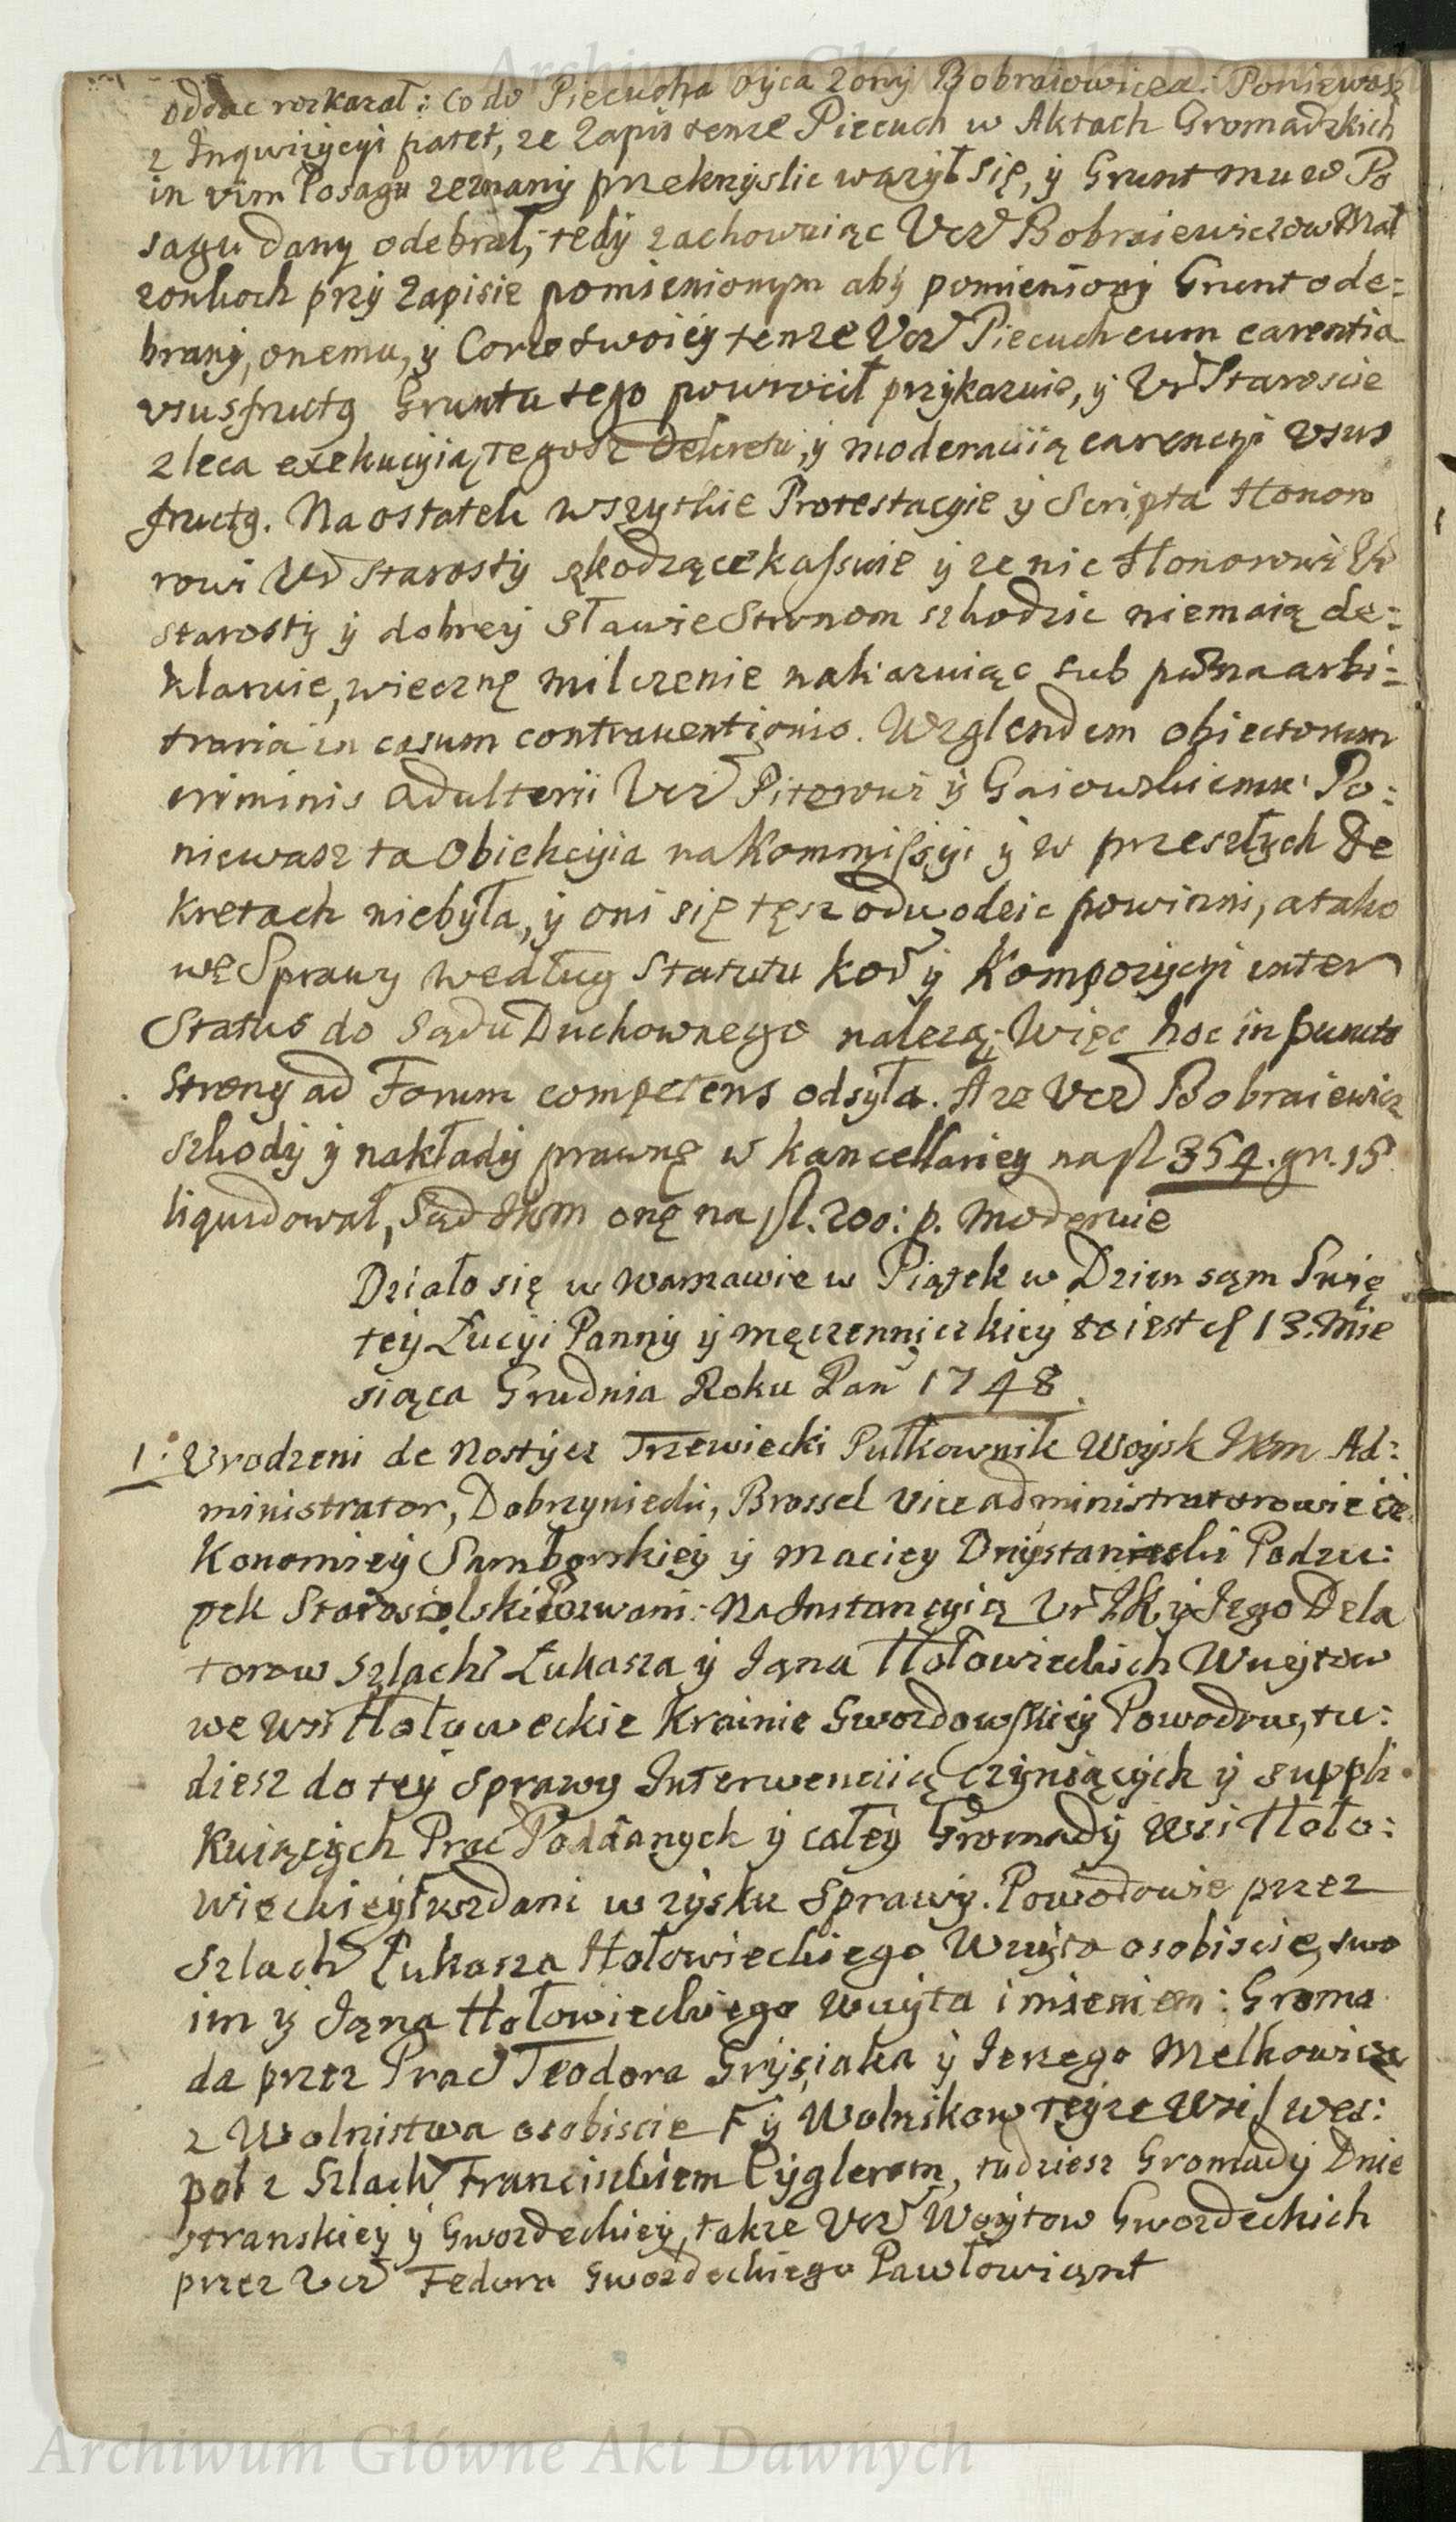 Archiwum Główne Akt Dawnych
oddac rozkazał: Co do Piecucha oyca zony Bobraiowicza: Poniewasz
z Inqwizycyi patet, ze Zapis tenze Piecuch w Aktach Gromadzkich
in vim Posagu zeznany przekryslic wazył się, y Grunt mu w Po
sagu dany odebrał, tedy zachowuiąc Ucz Bobraiewiczow Mał
zonkoch przy Zapisie pomienionym aby pomieniony Grunt ode:
brany, onemu, y Corze swoiey tenze Ucz Piecuch cum carentia
ususfructg Gruntu tego powrocił przykazuie, y Ur Staroscie
zleca exekucyią tegosz Dekretu, y moderaciią carencyi usus
fructg. Na ostatek wszytkie Protestacyie y Scripta Honoro
rowi Ur Starosty szkodzące kassuie y ze nic Honorowi Ur
Starosty y dobrey Sławie Stronom szkodzic niemaią de:
klaruie, wieczne milczenie nakazuiąc sub pœna arbi:
traria in casum contraventionis. Wzglendem obiectorum
criminis adulterii Ucz Piterowi y Gaiowskiemu: Po:
niewasz ta Obiekcyia na Kommissyi y w przeszłych De
kretach niebyła, y oni się tęsz odwodzic powinni, a tako
we Sprawy według Statutu Kor y Kompozycyi inter
Status do Sądu Duchownego nalezą; Więc hoc in puncto
Strony ad Forum competens odsyła. A ze Ucz Bobraiewicz
szkody y nakłady prawne w kancellariey na fl 354. gr. 15
liquidował, Sąd Ikm onę na fl. 200: p. moderuie
Działo się w Warszawie w Piątek w Dzien sąm Swię
tey Łucyi Panny y męczenniczkiey to iest d 13. Mie
siąca Grudnia Roku Pan 1748.
1: Urodzeni de Nostycz Trzewiecki Pułkownik Woysk Ikm Ad:
ministrator, Dobrzyniecki, Brossel viceadministratorowie Œ
Konomiey Samborskiey y Maciey Dnystanieski Podzu:
pek Starosolski Pozwani: Na Instancyią Ur Ik y Jego Dela
torow Szlach Łukasza y Jąna Hołowieckich Wuytow
we wsi Hołoweckie Krainie Gwozdowskiey Powodow, tu:
diesz do tey Sprawy Interwenciią czyniących y suppli
Kuiących Prac Poddanych y całey Gromady Wsi Hoło:
wieckiey wzdani w zysku Sprawy. Powodowie przez
Szlach Łukasza Hołowieckiego Wuyta osobiscie, swo
im y Jąna Hołowieckiego Wuyta imieniem: Groma
da przez Prac Teodora Gryssiaka y Jerzego Melkowicza
z Wolnistwa osobiscie y Wolnikow teyze Wsi wes:
poł z Szlach Franciszkiem Cyglerem, tudziesz Gromady Dnie
stranskiey y Gwozdeckiey, takze Ucz Woytow Gwozdeckich
przez Ucz Fedora Gwozdeckiego Pawłowiąnt
Archiwum Główne Akt Dawnych